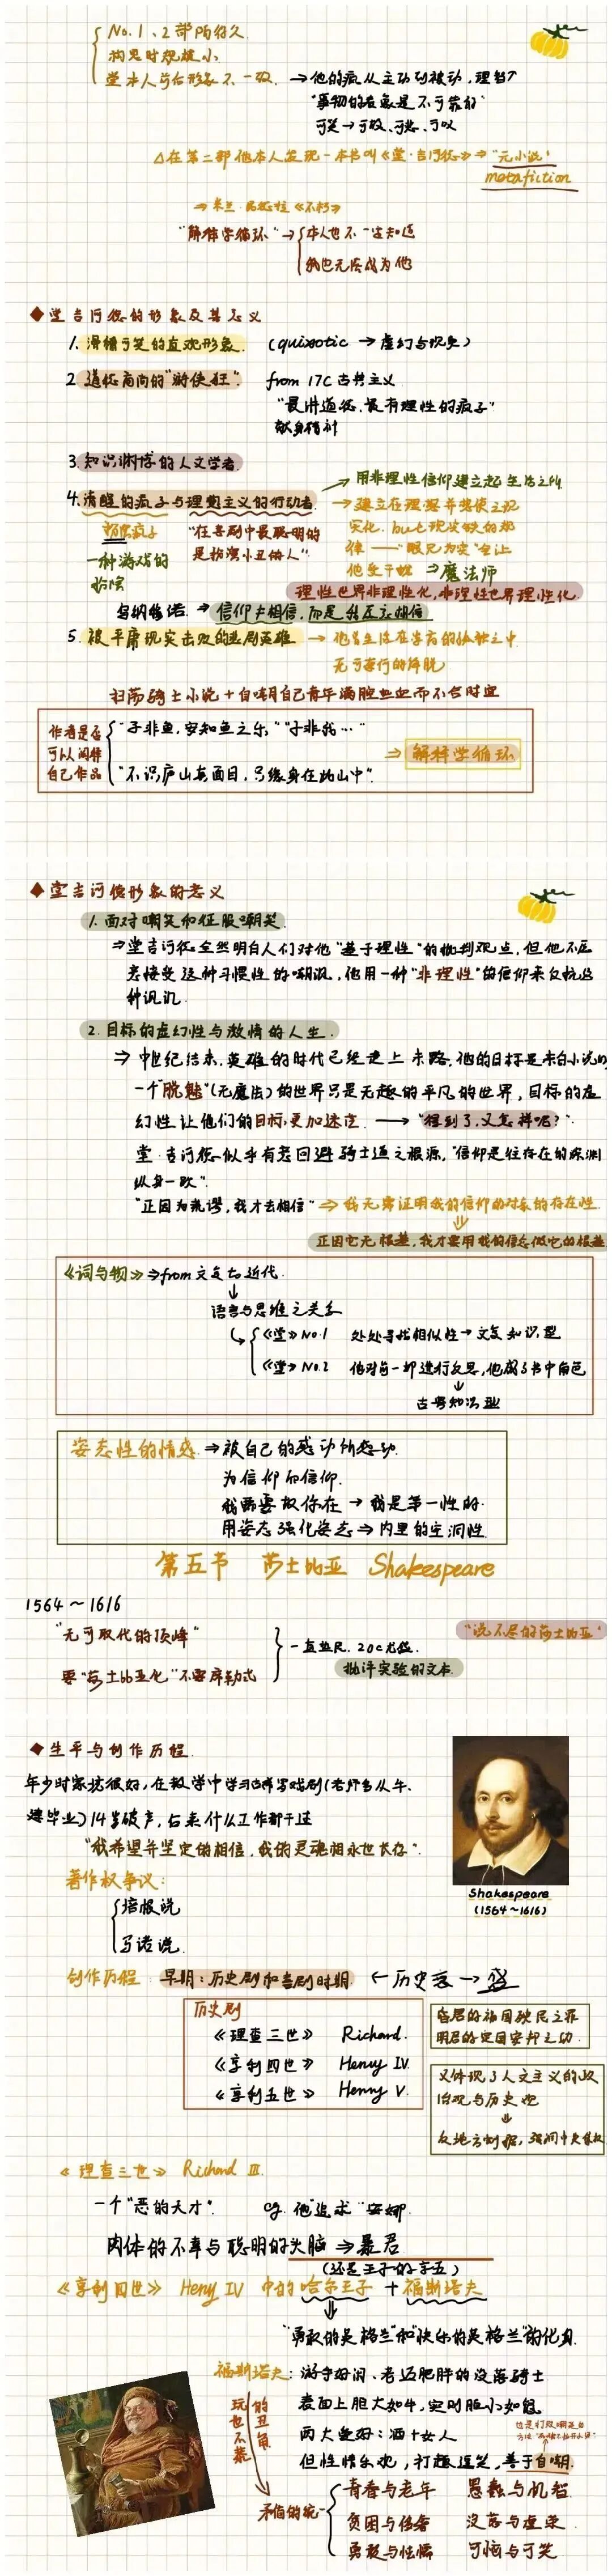 No.1、2部隔得久
构思时规模小
堂本人前后形象不一致 → 他的疯从主动到被动,理智了
"事物的表象是不可靠的"
可笑→可敬、可悲、可叹
△在第二部他本人发现一本书叫《堂·吉诃德》⇒"元小说"
metafiction
→ 米兰·昆德拉《不朽》
"解释学循环"→ 本人也不一定知道
我也无法成为他
◆堂吉诃德的形象及其意义
1. 滑稽可笑的直观形象. (quixotic → 虚幻与现实)
2 道德高尚的"游侠狂". from 17C 古典主义
"最讲道德.最有理性的疯子"
献身精神
3. 知识渊博的人文学者
4. 清醒的疯子与理想主义的行动者 → 用非理性信仰建立起生活之所
→ 建立在理想并若使之现
疯子 "在喜剧中最聪明的 实化. but 现实
一种游戏的 是扮演小丑的人". ——"眼见为实"会让
他受干扰 ⇒魔法师
理性世界非理性化,非理性世界理性化
乌纳穆诺. ⇒ 信仰去相信,而是我正在相信
5. 被平庸现实击败的悲剧英雄 → 他常生活在崇高的孤独之中
无可奉行的
扫荡骑士小说+自嘲自己青年满腔热血而不合时宜
作者是否 "子非鱼,安知鱼之乐" "子非我…"
可以阐释 ⇒ 解释学循环
自己作品 "不识庐山真面目,只缘身在此山中".
◆堂吉诃德形象的意义
1. 面对嘲笑和征服嘲笑
⇒堂吉诃德全然明白人们对他"基于理性"的批判观点,但他不愿
意接受这种习惯性的嘲讽,他用一种"非理性"的信仰来反抗这
种讥讽.
2. 目标的虚幻性与激情的人生.
⇒ 中世纪结束,英雄的时代已经走上末路.他的目标是来自小说的
一个"脱魅"(无魔法)的世界只是无趣的平凡的世界,目标的虚
幻性让他们的目标更加迷
"得到了,又怎样呢?".
堂·吉诃德似乎有意回避骑士道之根源,"信仰是往存在的深渊
纵身一跃".
"正因为荒谬,我才去相信" ⇒ 我无需证明我的信仰的对象的存在性.
正因它无根基,我才要用我的信念做它的根基
《词与物》⇒from 文复古近代.
语言与思维之关系
《堂》No.1 处处寻找相似性→文复知识型
《堂》No.2 他对前一部进行反思,他成了书中角色
古典知识型
姿态性的情感 ⇒ 被自己的感动所感动.
为信仰而信仰.
我需要故你在 → 我是第一性的.
用姿态强化姿态 ⇒ 内里的空洞性
第五节 莎士比亚 Shakespeare
1564～1616
"无可取代的顶峰" "说不尽的莎士比亚"
一直 20C尤盛.
要"莎士比亚化"不要席勒式 批评实验的文本.
◆生平与创作历程.
年少时家境很好,在教学中学习古希写戏剧(老师多从牛.
津毕业)14岁破产,后来什么工作都干过
"我希望并坚定的相信,我的灵魂相永世长存".
著作权争议:
培根说
马洛说.
Shakespeare
(1564～1616)
创作历程 早期:历史剧和喜剧时期. ← 历史 → 盛
历史剧
《理查三世》 Richard.
《亨利四世》 Henry IV.
《亨利五世》 Henry V.
昏君的祸国殃民之罪
明君的定国安邦之功.
又体现了人文主义的政
治观与历史观
反地方割据,强调中央集权
《理查三世》 Richard III.
一个"恶的天才". eg. 他"追求"安娜.
肉体的不幸与聪明的头脑 ⇒暴君
(还是王子的亨五)
《亨利四世》 Henry IV 中的哈尔王子 + 福斯塔夫
"勇敢的英格兰"和"快乐的英格兰"的化身.
福斯塔夫: 游手好闲、老迈肥胖的没落骑士
表面上胆大如牛,实则胆小如鼠
两大爱好:酒+女人
但性情乐观,打趣逗笑,善于自嘲.
矛盾的统一
青春与老年 愚蠢与机智
贫困与 没落与虚荣
勇敢与怯懦 可恼与可笑